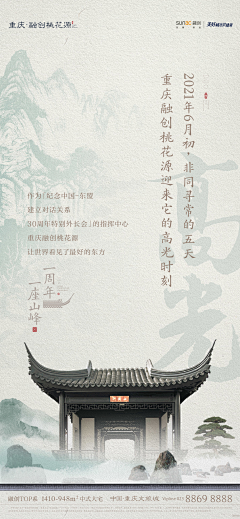 重庆·融创桃花源
SUNAC融创
2021年6月初，非同寻常的五天
重庆融创桃花源迎来它的高光时刻
高光
作为「纪念中国-东盟
建立对话关系
30周年特别外长会」的指挥中心
重庆融创桃花源
让世界看见了最好的东方
一周年
一座山峰
融创TOP系 1410-948m² 中式大宅 中国·重庆大旅城 8869 8888